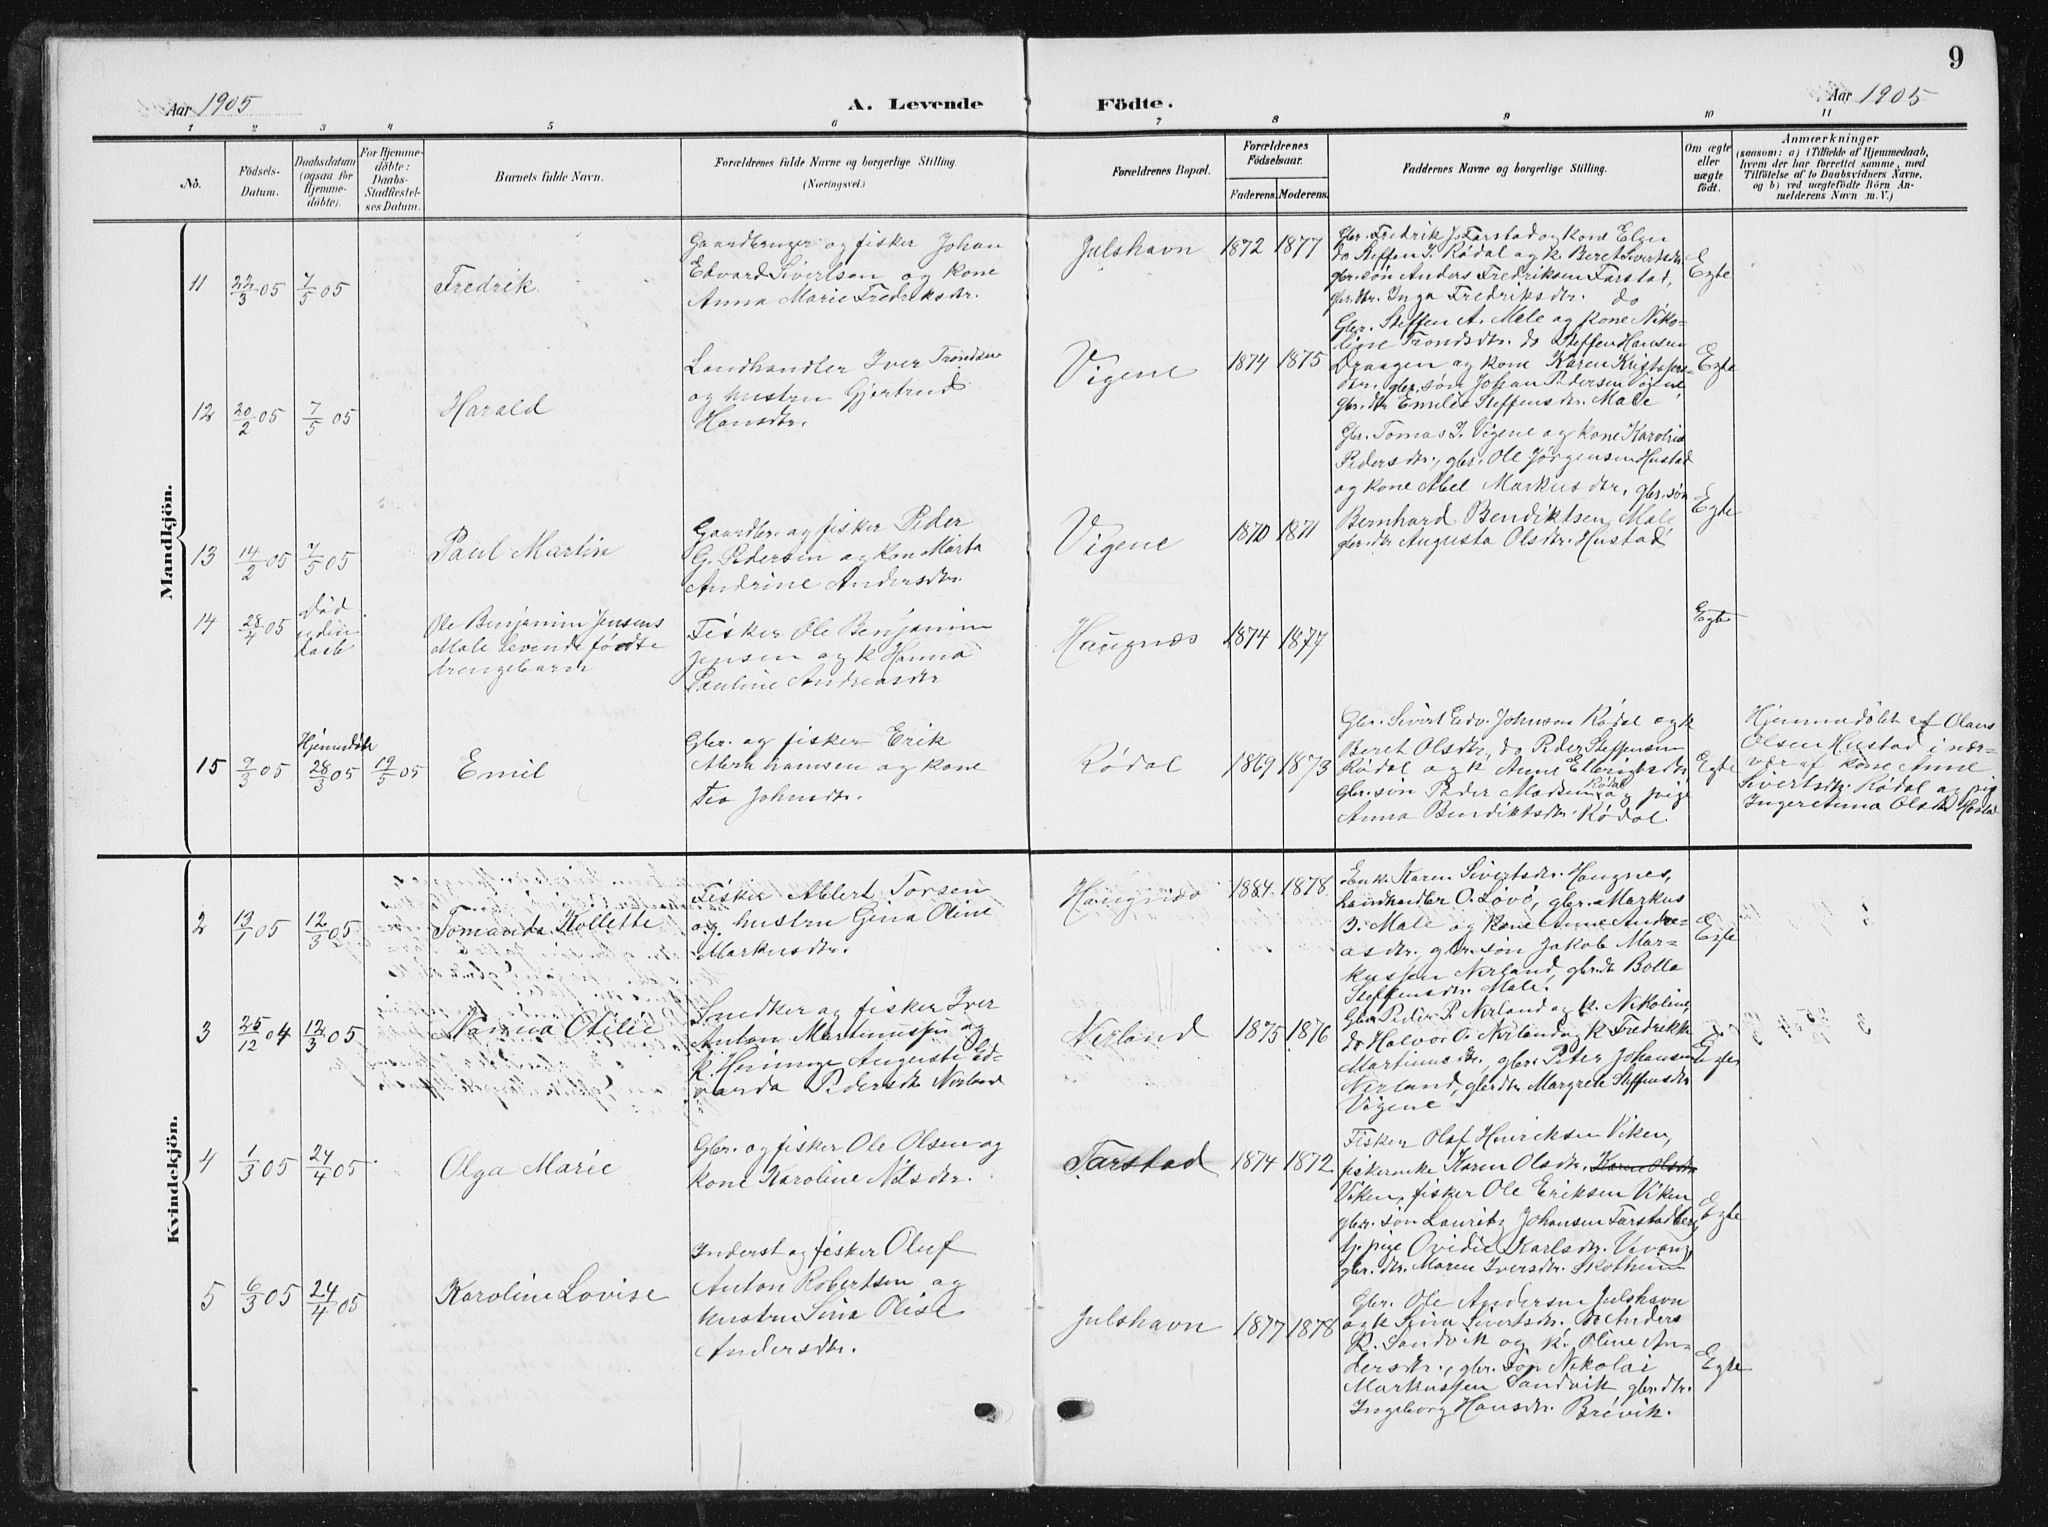 9
Aar 1905
A. Levende Födte.
Aar 1905
1 2 3 4 5 6 7 8 9 10 11
No.
Födsels-
Datum.
Daabsdatum
(ogsaa for
Hjemme-
döbte).
For Hjemme-
döbte:
Daabs-
Stadfæstel-
ses Datum.
Barnets fulde Navn.
Forældrenes fulde Navne og borgerlige Stilling.
(Næringsvei.)
Forældrenes Bopæl.
Forældrenes
Födselsaar.
Faderens. Moderens.
Faddernes Navne og borgerlige Stilling.
Om ægte
eller
uægte
födt.
Anmærkninger
(saasom: a) i Tilfælde af Hjemmedaab,
hvem der har forrettet samme, med
Tilföielse af to Daabsvidners Navne.
og b) ved uægtefödte Börn An-
melderens Navn m. V.)
Mandkjön.
11 22/3 05 7/5 05
Fredrik
Gaardbruger og fisker Johan
Edvard Sivertsen og kone
Anna Marie Fredriksdtr.
Julshavn 1872 1877
Gbr. Fredrik J. Farstad og kone Elen
do Steffen J. Rødal og k. Beret Sivertsdtr.
gbr. søn Anders Fredriksen Farstad,
gbr. dtr. Inga Fredriksdtr. do
Egte
12 20/2 05 7/5 05
Harald
Landhandler Iver Trondsen
og hustru Gjertrud
Hansdtr.
Vigene 1874 1875
Gbr. Steffen A. Male og kone Niko-
line Trondsdtr. do Steffen Hansen
Draagen og kone Karen Kristofers-
dtr. gbr. søn Johan Pedersen Vigene
gbr. dtr Emilie Steffensdtr. Male
Egte
13 14/2 05 7/5 05
Paul Martin
Gaardbr. og fisker Peder
G. Pedersen og kone Marta
Andrine Andersdtr.
Vigene 1870 1871
Gbr. Tomas P. Vigene og kone
Pedersdtr., gbr. Ole Jørgensen Hustad
og kone Abel Markusdtr, gbr. søn
Bernhard Bendiktsen Male
gbr. dtr Augusta Olsdtr. Hustad
Egte
14 28/4 05 død
uden
daab
Ole Benjamin Jensens
Male levende fødte
drengebarn
Fisker Ole Benjamin
Jensen og k Hanna
Pauline Andreasdtr
Haugnæs 1874 1877
Egte
15 9/3 05 Hjemmedøbt
28/3 05 19/5 05
Emil
Gbr. og fisker Erik
Abrahamsen og kone
Tea Johnsdtr.
Rødal 1869 1873
Gbr. Sivert Edv. Johnsen Rødal og k
Beret Olsdtr, do Peder Steffensen
Rødal og k Anne Ellingsdtr
gbr. søn Peder Madsen Rødal og pige
Anna Bendiktsdtr. Rødal.
Egte
Hjemmedøbt af Olaus
Olsen Hustad i nær-
vær af kone Anne
Sivertsdtr. Rødal og pig
Ingeranna Olsdtr Hustad
Kvindekjön.
2 13/1 05 12/3 05
Tomanda Kollette
Fisker Albert Torsen
og hustru Gina Oline
Markusdtr.
1884 1878
Enk. Karen Sivertsdtr. Haugnes,
Landhandler O. Løvø, gbr. Markus
J. Male og kone Anne Andre-
asdtr. gbr. søn Jakob Mar-
kussen Nerland, gbr. dt Bolla
Steffensdtr. Male.
Egte
3 25/12 04 12/3 05
Nanna Otilie
Snedker og fisker Iver
Anton Martinussen og
k. Auguste Ed-
varda Pedersdtr Nerland
Nerland 1875 1876
Gbr. Peder P. Nerland og k. Nikoline,
do Halvor O. Nerland og k Fredrikke
Martinusdtr., gbr. Peter Johansen
Nerland, gbr dtr. Margrete Steffensdtr
Vigene
Egte
4 1/3 05 24/4 05
Olga Marie
Gbr. og fisker Ole Olsen og
kone Karoline Nilsdtr.
Farstad 1874 1872
Fisker Olaf Henriksen Viken,
fiskerenke Karen Olsdtr. Karen Olsdtr
Viken, fisker Ole Eriksen Viken
gbr. søn Lauritz Johansen Farstadberg
tj. pige Ovidie Karlsdtr. Vevang,
gbr. dtr. Maren Iversdtr. Skotheim
Egte
5 6/3 05 24/4 05
Karoline Lovise
Inderst og fisker Oluf
Anton Robertsen og
hustru Sina Olise
Andersdtr.
Julshavn 1877 1878
Gbr. Ole Andersen Julshavn
og k Sina Sivertsdtr. do Anders
R. Sandvik og k. Oline An-
dersdtr., gbr. søn Nikolai
Markussen Sandvik gbr. dtr.
Ingeborg Hansdtr. Brevik.
Egte